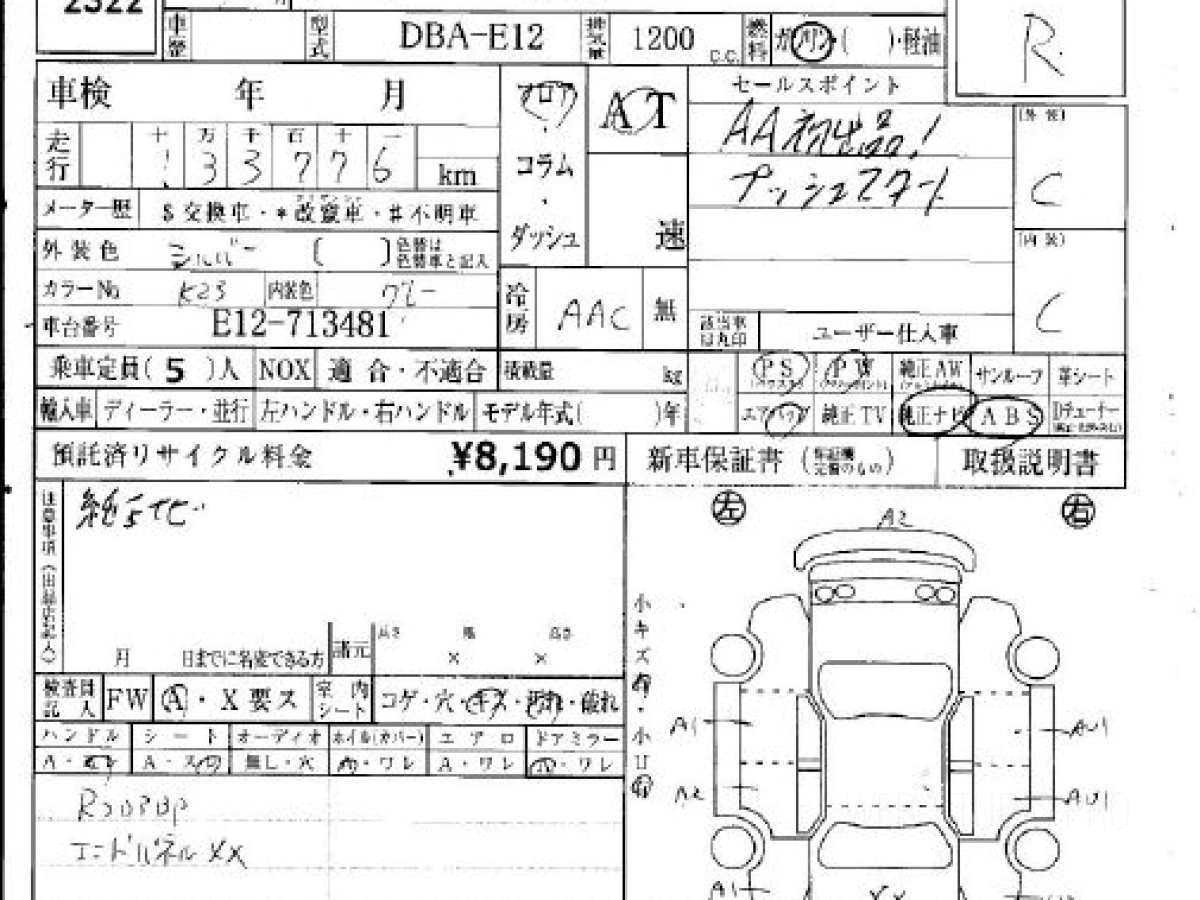 2322
車歴 型式 DBA-E12 排気量 1200 C.C. 燃料 ガソリン・( )・軽油
R
車検 年 月 フロア AT セールスポイント
・ AA初出品!
プッシュスタート
走行 十 万 千 百 十 一
1 3 3 7 7 6 km
コラム
・
メーター歴 $交換車・*改竄車・#不明車
ダッシュ 速
[外装]
C
外装色 シルバー ( ) 色替は 色替車と記入
[内装]
C
カラーNo K23 内装色 グレー
冷房 AAC 無
車台番号 E12-713481
該当車は丸印 ユーザー仕入車
乗車定員( 5 )人 NOX 適合・不適合 積載量 kg
PS PW 純正AW サンルーフ 革シート
輸入車 ディーラー・並行 左ハンドル・右ハンドル モデル年式( )年
エアバッグ 純正TV 純正ナビ ABS Dチューナー
預託済リサイクル料金 ¥8,190 円 新車保証書 取扱説明書
注意事項(出品店記入)
左 右
A2
小キズ・小U
月 日までに名変できる方 諸元 長さ 幅 高さ
× ×
検査員記入 FW A・X要ス 室内シート コゲ・穴・キズ・汚れ・破れ
ハンドル シート オーディオ ホイル(カバー) エアロ ドアミラー
無し・穴 ・ワレ A・ワレ ・ワレ
A1 AU1
A2 AU1
エンドパネルXX
A1 XX